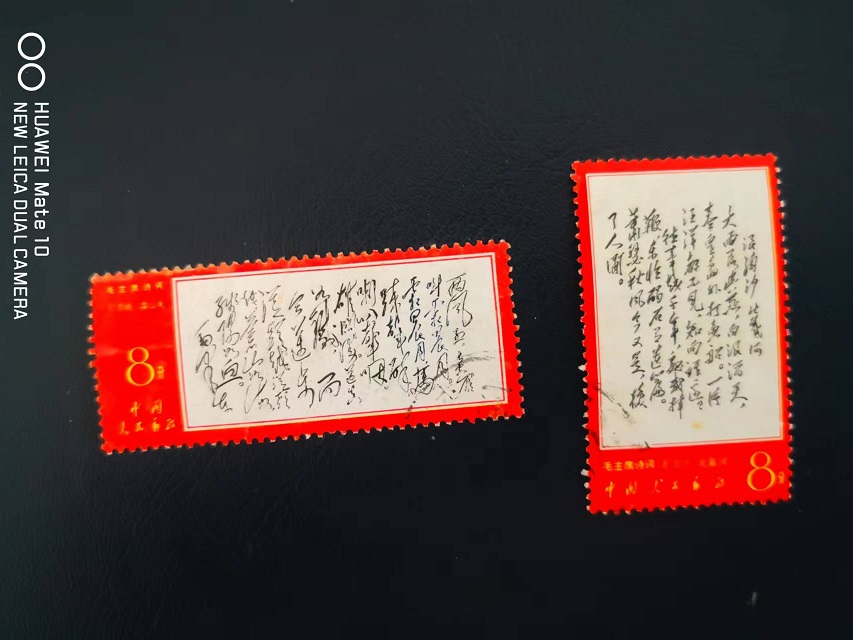 HUAWEI Mate 10
NEW LEICA DUAL CAMERA
毛主席诗词
8分
中国人民邮政
西风烈
长空雁叫霜晨月
霜晨月
马蹄声碎
喇叭声咽
雄关漫道真如铁
而今迈步从头越
从头越
苍山如海
残阳如血
毛泽东
浪淘沙 北戴河
大雨落幽燕 白浪滔天
秦皇岛外打鱼船 一片
汪洋都不见 知向谁边
往事越千年 魏武挥
鞭 东临碣石有遗篇
萧瑟秋风今又是 换
了人间。
毛主席诗词
中国人民邮政
8分